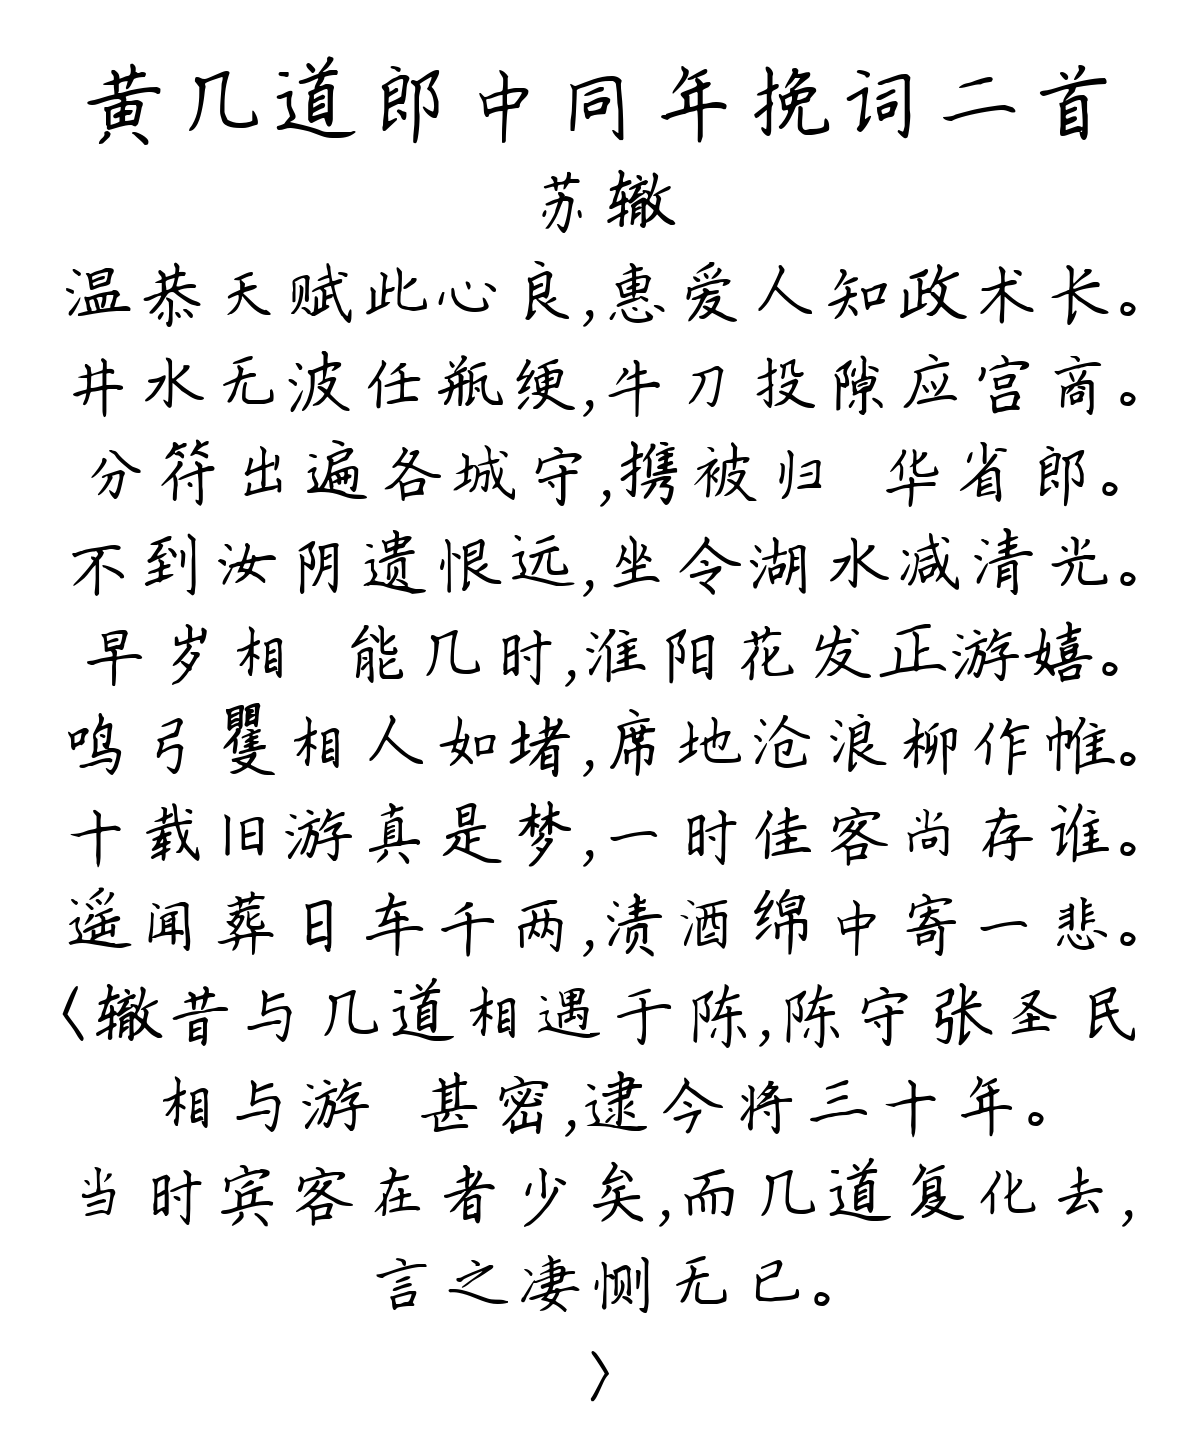 黄几道郎中同年挽词二首
苏辙
温恭天赋此心良,惠爱人知政术长。
井水无波任瓶绠,牛刀投隙应宫商。
分符出遍各城守,携被归 华省郎。
不到汝阴遗恨远,坐令湖水减清光。
早岁相 能几时,淮阳花发正游嬉。
鸣弓矍相人如堵,席地沧浪柳作帷。
十载旧游真是梦,一时佳客尚存谁。
遥闻葬日车千两,渍酒绵中寄一悲。
〈辙昔与几道相遇于陈,陈守张圣民
相与游 甚密,逮今将三十年。
当时宾客在者少矣,而几道复化去,
言之凄恻无已。
〉